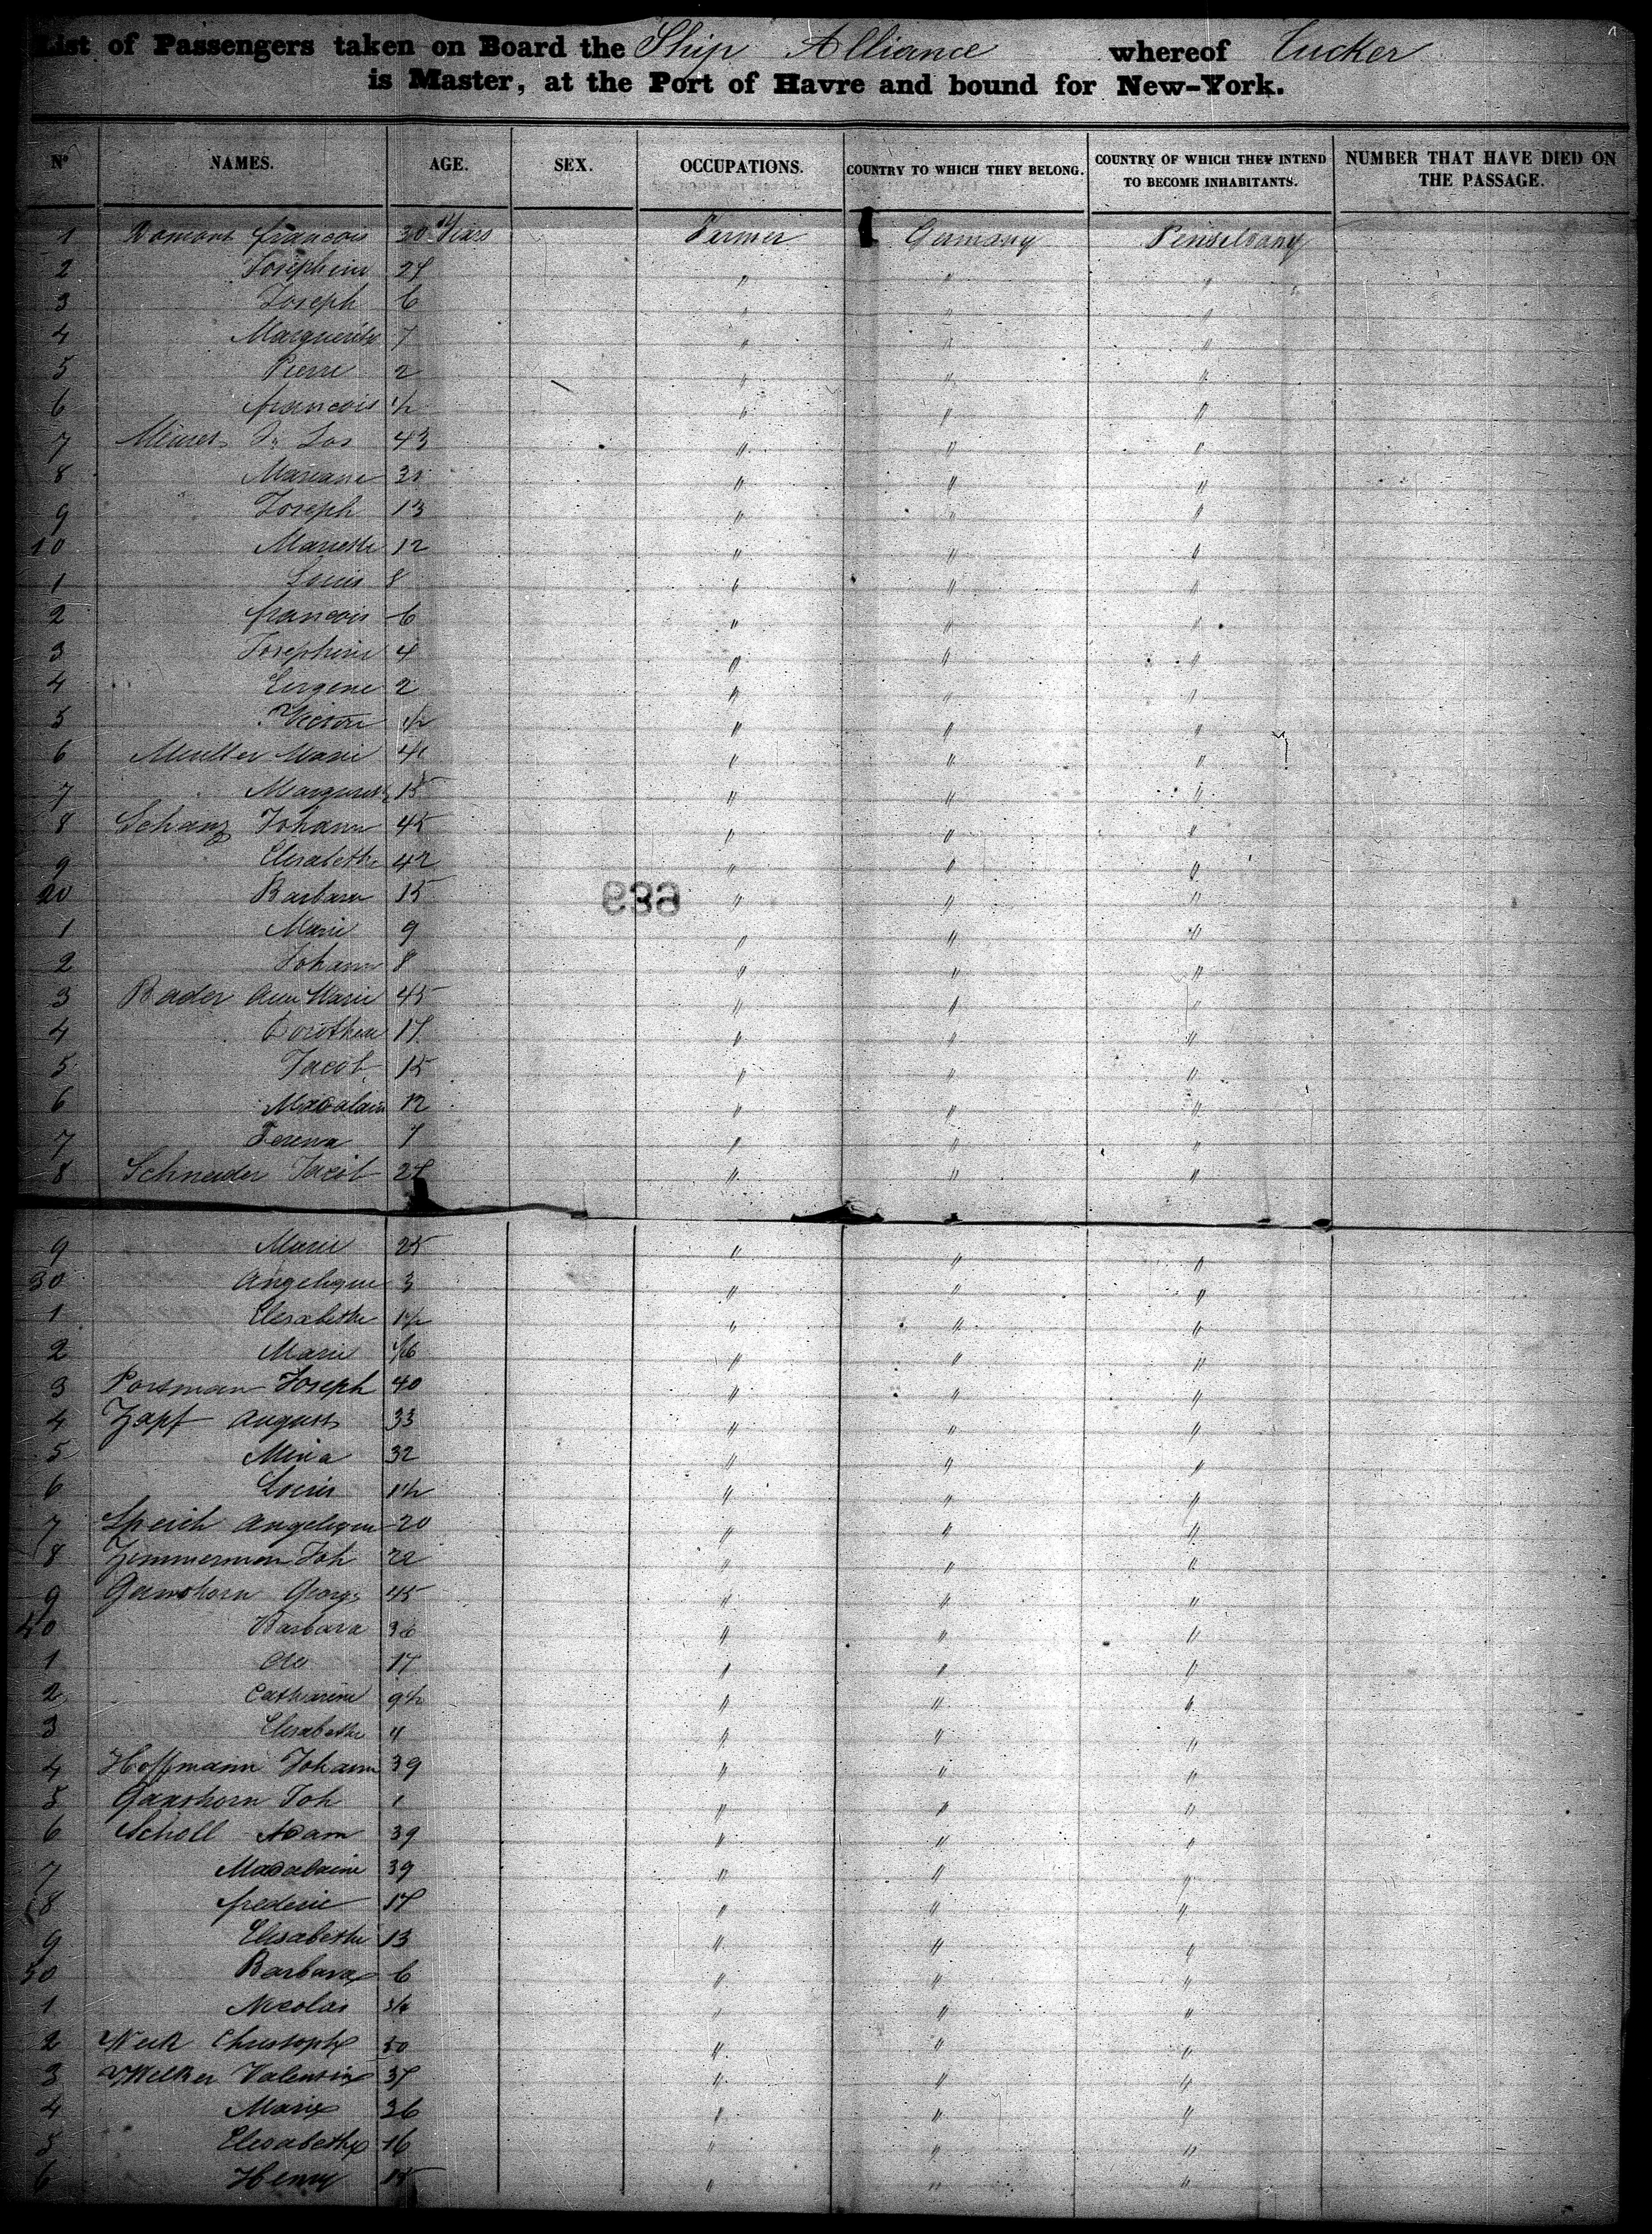 List of Passengers taken on Board the Ship Alliance whereof Tucker
is Master, at the Port of Havre and bound for New-York.
Nº NAMES. AGE. SEX. OCCUPATIONS. COUNTRY TO WHICH THEY BELONG. COUNTRY OF WHICH THEY INTEND TO BECOME INHABITANTS. NUMBER THAT HAVE DIED ON THE PASSAGE.
1 Romont francois 30 Years Farmer Germany Penselvany
2 Josephine " " "
3 Joseph 6 " " "
4 Marguerite 7 " " "
5 Pierre 2 " " "
6 francois 1/2 " " "
7 43 " " "
8 Mariane " " "
9 Joseph 13 " " "
10 Mariette 12 " " "
1 Louis 8 " " "
2 francois 6 " " "
3 Josephine 4 " " "
4 Eugene 2 " " "
5 Victor 1/2 " " "
6 Muller Marie 41 " " "
7 15 " " "
8 Schanz Johann 45 " " "
9 Elisabethe 42 " " "
20 Barbara 15 " " "
1 Marie 9 " " "
2 Johann 8 " " "
3 Bader Ann Marie 45 " " "
4 Dorothea 17 " " "
5 Jacob 15 " " "
6 Madalain 12 " " "
7 Ferena 7 " " "
8 Schneider Jacob " " "
9 Marie 25 " " "
30 Angelique 3 " " "
1 Elisabethe 1 1/2 " " "
2 Marie " " "
3 Portsman Joseph 40 " " "
4 Zapf August 33 " " "
5 Mina 32 " " "
6 Louis 1 1/2 " " "
7 Speich Angelique 20 " " "
8 Zimmerman Joh 22 " " "
9 Ganshorn Georg 45 " " "
40 Barbara 36 " " "
1 17 " " "
2 Catharine 9 1/2 " " "
3 Elisabethe 4 " " "
4 Hoffmann Johann 39 " " "
5 Ganshorn Joh 1 " " "
6 Scholl Adam 39 " " "
7 Madalaine 39 " " "
8 frederic 17 " " "
9 Elisabethe 13 " " "
50 Barbara 6 " " "
1 Nicolas " " "
2 Christoph 50 " " "
3 Welker Valentin 37 " " "
4 Marie 36 " " "
5 Elisabethe 16 " " "
6 Henry 15 " " "